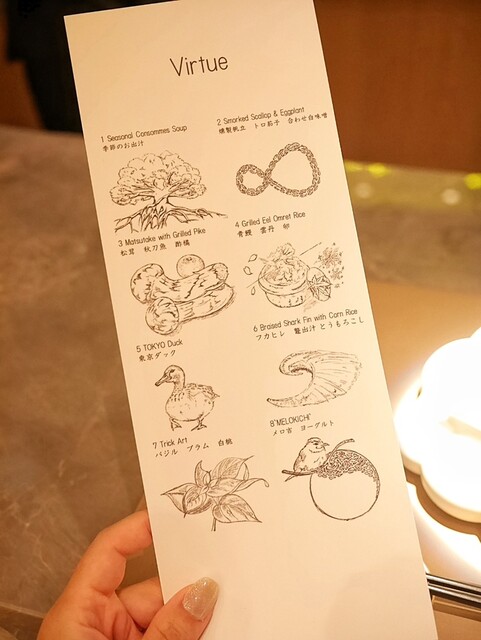 Virtue
1 Seasonal Consommes Soup
季節のお出汁
2 Smorked Scallop & Eggplant
燻製帆立 トロ茄子 合わせ白味噌
3 Matsutake with Grilled Pike
松茸 秋刀魚 酢橘
4 Grilled Eel Omret Rice
青鰻 雲丹 卵
5 TOKYO Duck
東京ダック
6 Braised Shark Fin with Corn Rice
フカヒレ 鼈出汁 とうもろこし
7 Trick Art
バジル プラム 白桃
8"MELOKICHI"
メロ吉 ヨーグルト